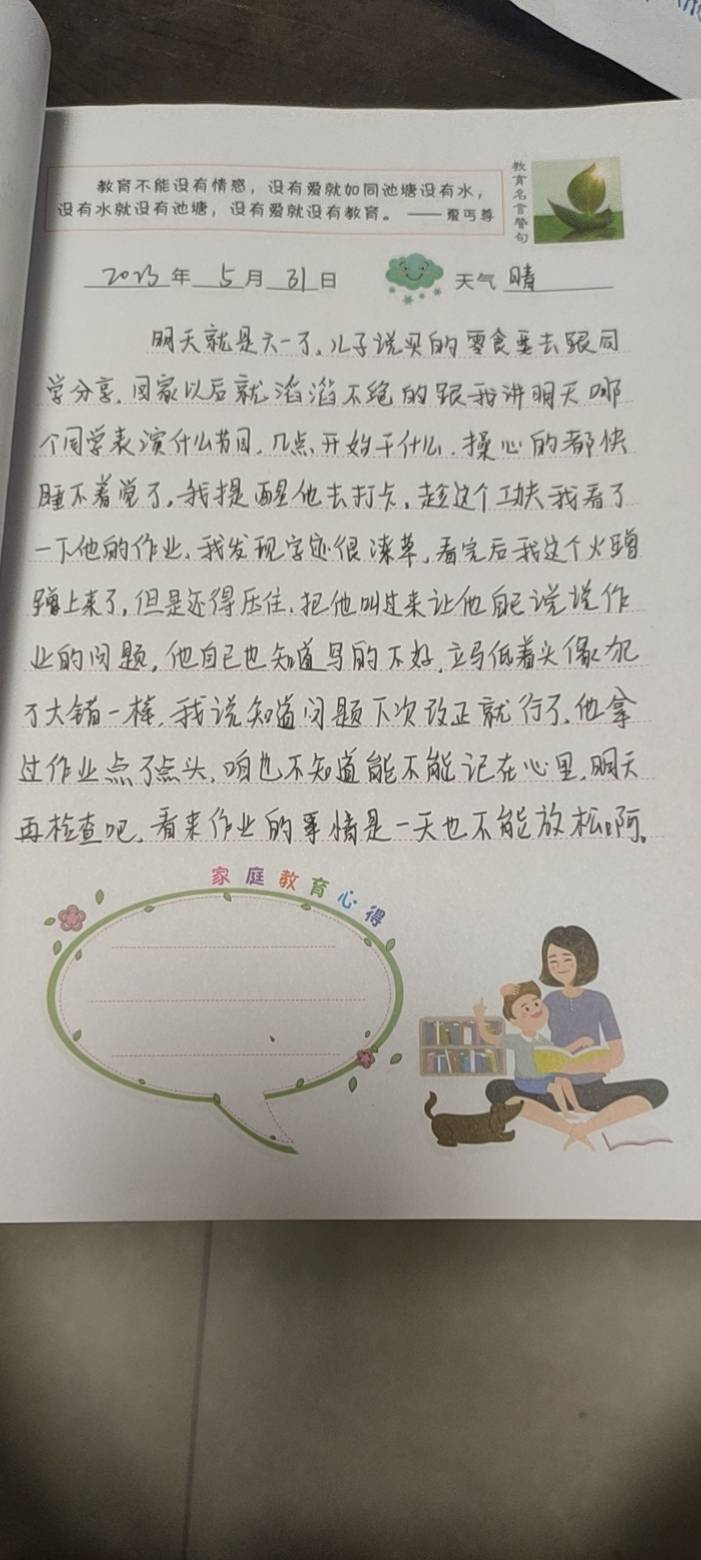 教育不能没有情感，没有爱就如同池塘没有水，
没有水就没有池塘，没有爱就没有教育。 —— 夏丏尊
教育名言警句
2023年 5月 31日 天气 晴
明天就是六一了，儿子说买的零食要去跟同
学分享，回家以后就滔滔不绝的跟我讲明天哪
个同学表演什么节目，几点开始干什么，操心的都快
睡不着觉了，我提醒他去打卡，趁这个功夫我看了
一下他的作业，我发现字迹很潦草，看完后我这个火蹭
蹭上来了，但是还得压住，把他叫过来让他自己说说作
业的问题，他自己也知道写的不好，立马低着头像犯
了大错一样，我说知道问题下次改正就行了，他拿
过作业点了点头，咱也不知道能不能记在心里，明天
再检查吧，看来作业的事情是一天也不能放松啊。
家庭教育心得